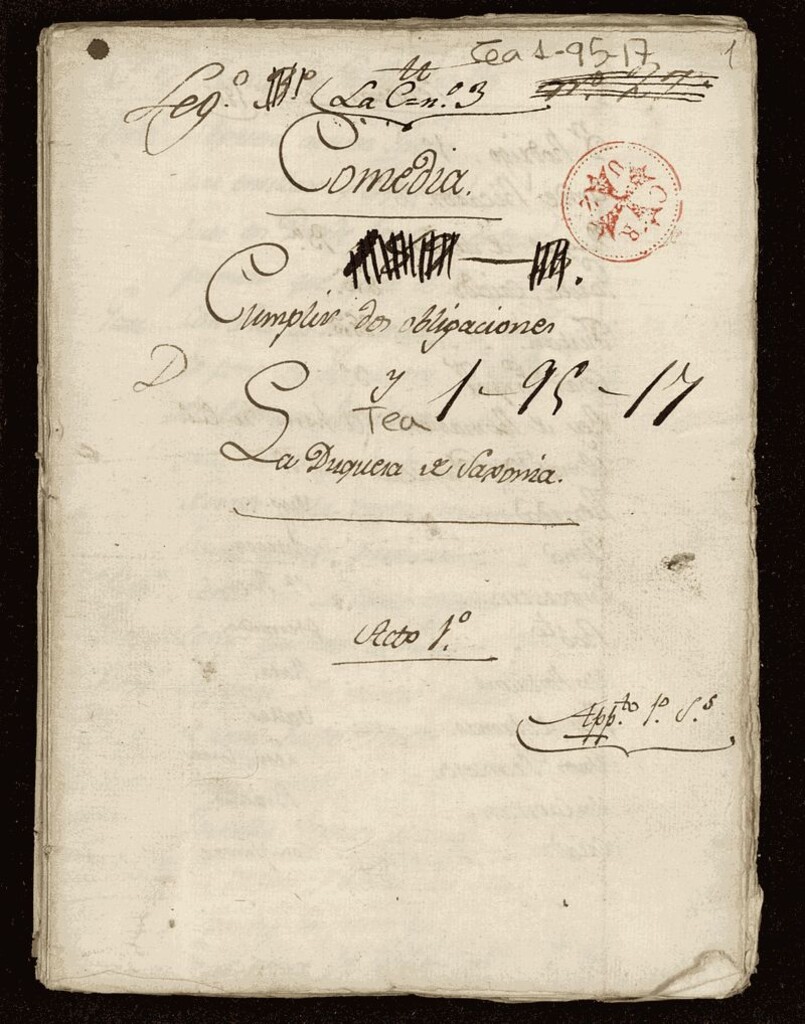 Tea 1-95-17
1
Leg.º La C=n.º 3
Comedia.
Cumplir dos obligaciones
D
y
Tea 1-95-17
La Duquesa de Saxonia.
Acto 1.º
App.to 1.º S.s